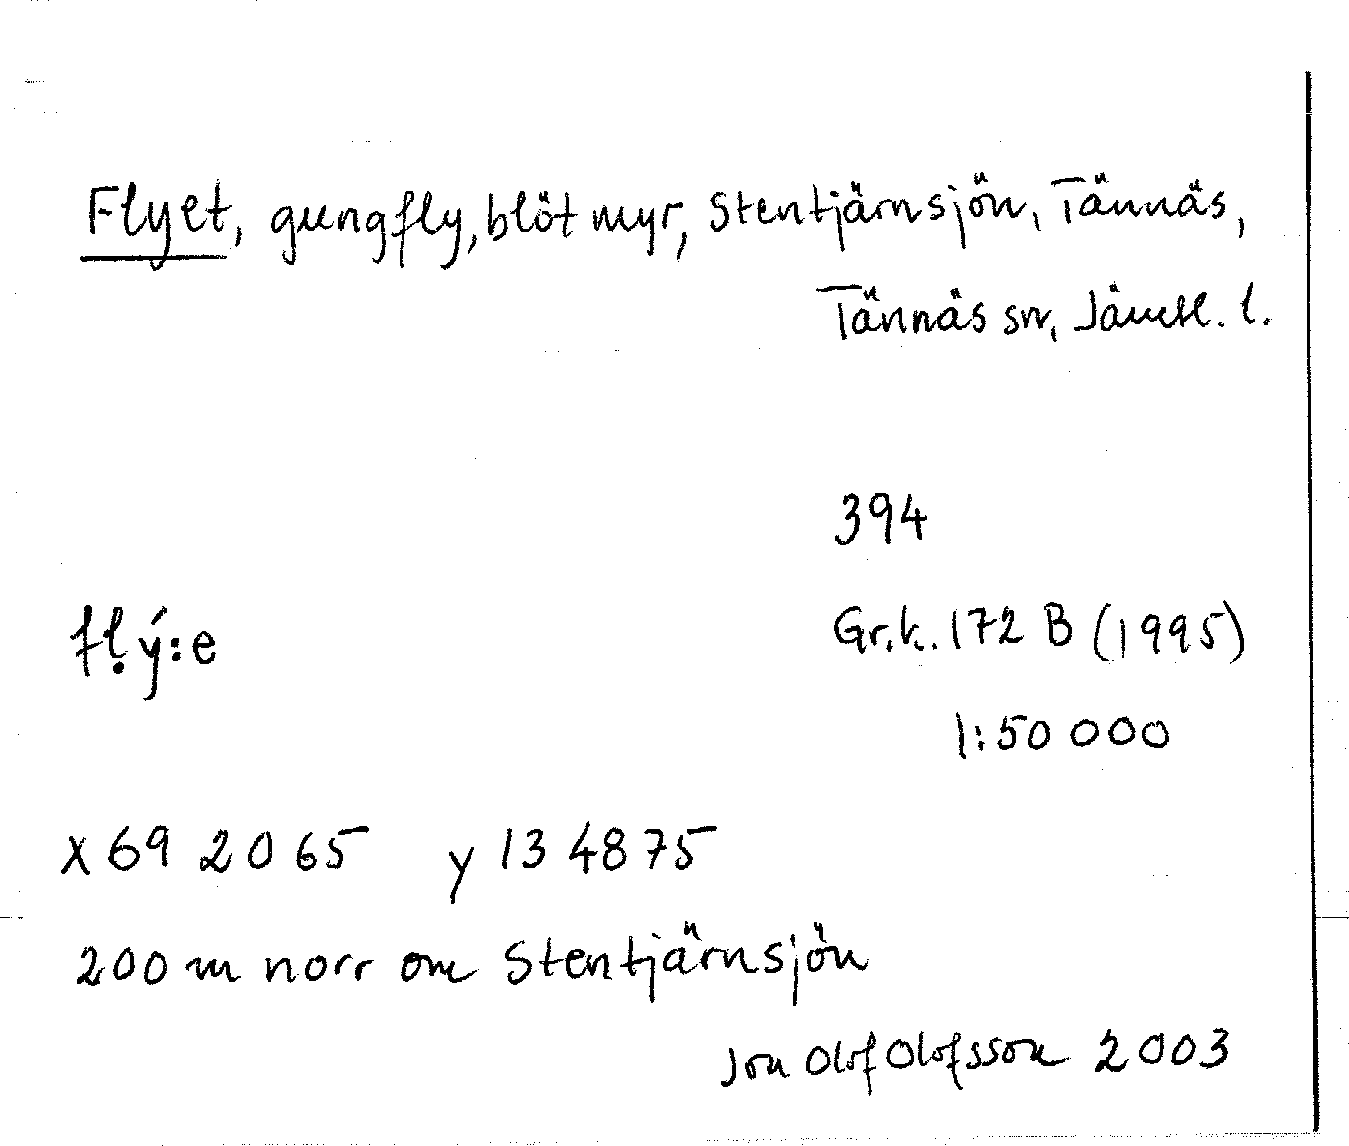 Flyet, gungfly, blöt myr, Stentjärnsjön, Tännäs,
Tännäs sn, Jämtl. l.
394
fḷý:e
Gr.k. 172 B (1995)
1:50 000
x 69 2065 y 13 4875
200 m norr om Stentjärnsjön
Jon Olof Olofsson 2003